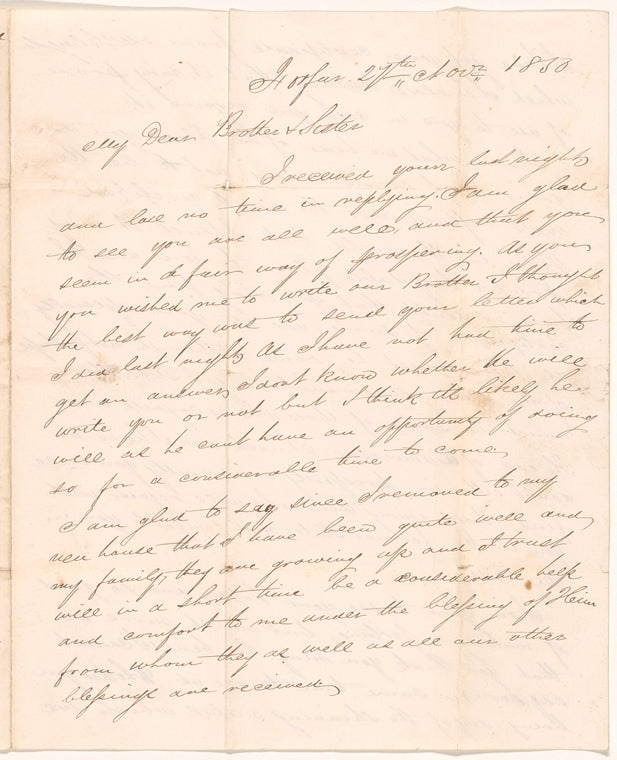 Forfar 27th Novr 1830
My Dear Brother & Sister
I received yours last night
and lose no time in replying. I am glad
to see you are all well, and that you
seem in a fair way of prospering. As you
you wished me to write our Brother I thought
the best way was to send your letter which
I did last night As I have not had time to
get an answer I dont know whether He will
write you or not but I think its likely he
will as he cant have an opportunity of doing
so for a considerable time to come
I am glad to say since I removed to my
new house that I have been quite well and
my family, they are growing up and I trust
will in a short time be a considerable help
and comfort to me under the blessing of Heim
from whom they as well as all our other
blessings are received